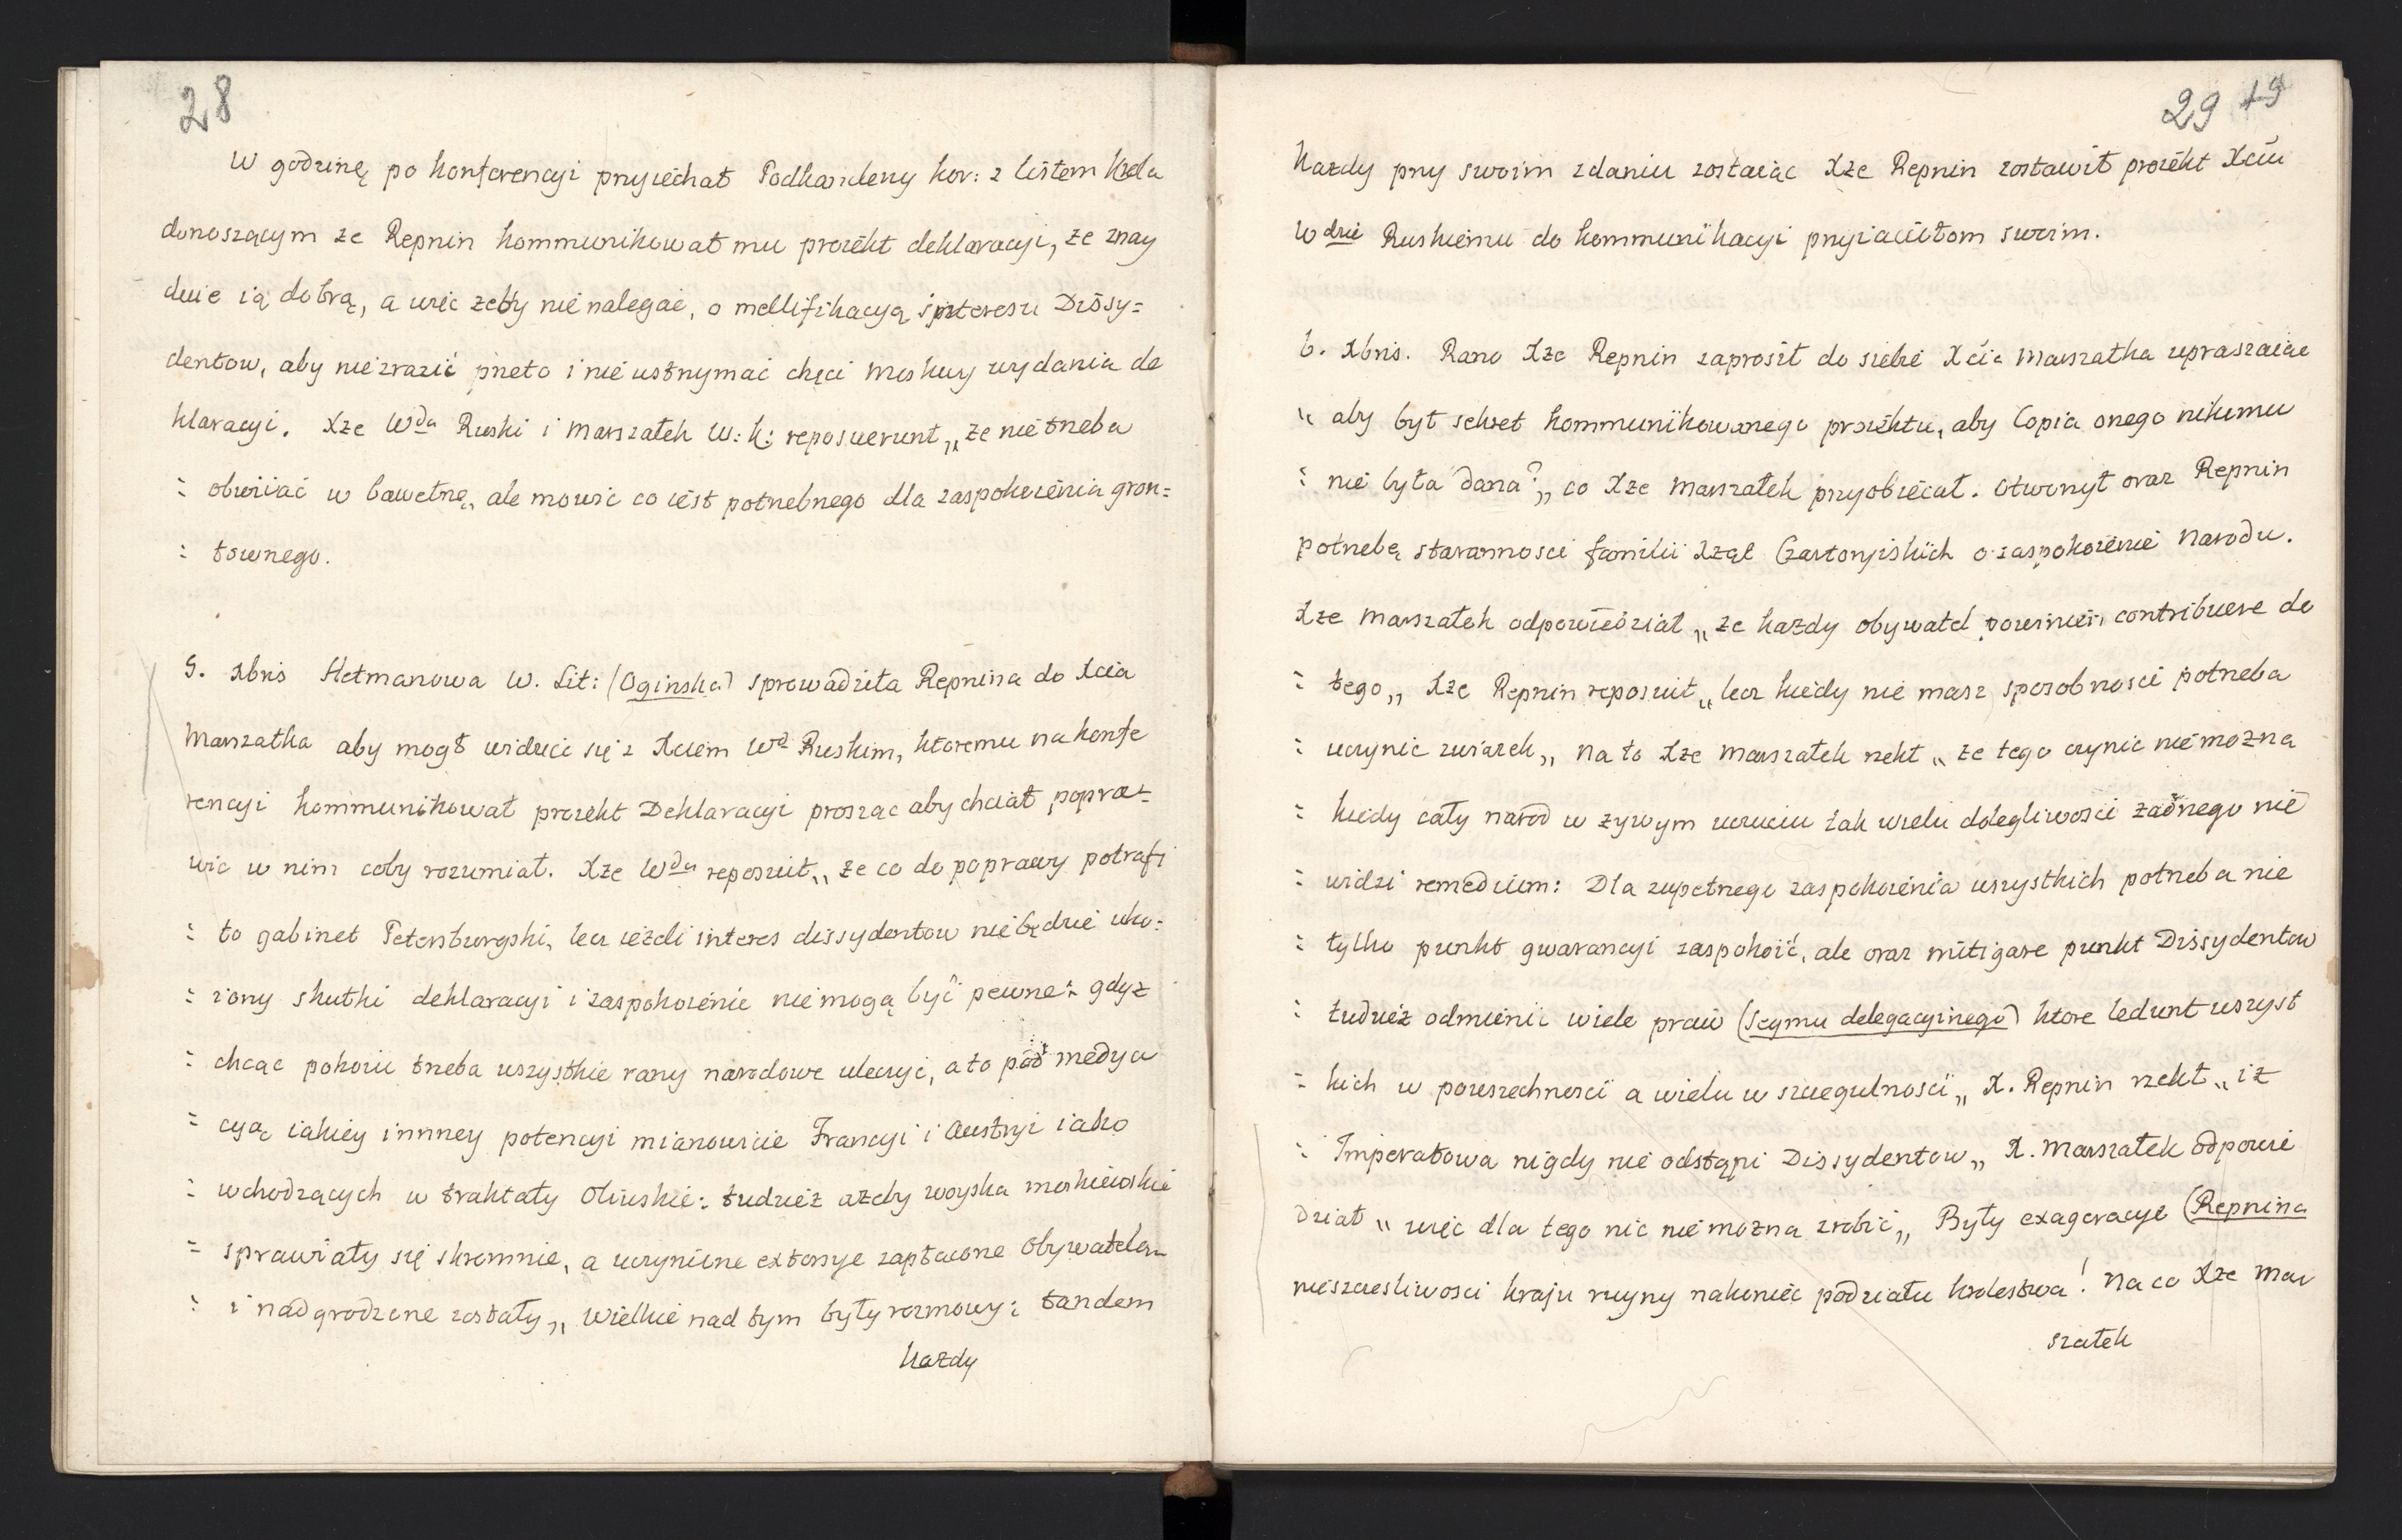 28
W godzinę po konferencyi przyiechał Podkanclerzy kor: z listem Króla
donoszącym ze Repnin kommunikował mu proiekt deklaracyi, ze znay
duie ią dobrą, a więc zeby nie nalegać, o mellifikacyą interesu Dissy=
dentow, aby nie zrazić przeto i nie ustrzymać chęci Moskwy wydania de
klaracyi. Xze Wda Ruski i Marszałek W: K: reposuerunt „ ze nie trzeba
= obwiiać w bawełnę, ale mowić co iest potrzebnego dla zaspokoienia grun=
= townego.
5. Xbris Hetmanowa W. Lit: (Oginska) sprowadziła Repnina do Xcia
Marszałka aby mogł widzieć się z Xciem Wdą Ruskim, ktoremu na konfe
rencyi kommunikował proiekt Deklaracyi prosząc aby chciał popra=
wic w nim coby rozumiał. Xze Wda reposuit „ ze co do poprawy potrafi
= to gabinet Petersburgski, lecz ieżeli interes dissydentow nie będzie uko=
= iony skutki deklaracyi i zaspokoienie nie mogą być pewne: gdyz
= chcąc pokoiu trzeba wszystkie rany narodowe uleczyć, a to pod medya
= cyą iakiey innney potencyi mianowicie Francyi i Austryi iako
= wchodzących w traktaty Oliwskie: tudzież azeby woyska moskiewskie
= sprawiały się skromnie, a uczynione extorsye zapłacone obywatelom
= i nadgrodzone zostały „ Wielkie nad tym były rozmowy: tandem
każdy
29 19
każdy przy swoim zdaniu zostaiąc Xze Repnin zostawił proiekt Xciu
Wdzie Ruskiemu do kommunikacyi przyiaciołom swoim.
6. Xbris. Rano Xze Repnin zaprosił do siebie Xcia Marszałka upraszaiąc
„ aby był sekret kommunikowanego proiektu, aby Copia onego nikomu
= nie była dana „ co Xze Marszałek przyobiecał. Otworzył oraz Repnin
potrzebę starannosci familii Xząt Czartoryiskich o zaspokoienie Narodu.
Xze Marszałek odpowiedział „ ze kazdy obywatel powinien contribuere do
= tego „ Xze Repnin reposuit „ lecz kiedy nie masz sposobnosci potrzeba
= uczynic związek „ na to Xze Marszałek rzekł „ ze tego czynic nie mozna
= kiedy cały narod w zywym uczuciu tak wielu dolegliwosci zadnego nie
= widzi remedium: Dla zupełnego zaspokoienia wszystkich potrzeba nie
= tylko punkt gwarancyi zaspokoić, ale oraz mitigare punkt Dissydentow
= tudzież odmienić wiele praw (Seymu delegacyinego) ktore ledunt wszyst
= kich w powszechnosci a wielu w szczegulnosci „ X. Repnin rzekł „ iz
= Imperatowa nigdy nie odstąpi Dissydentow „ X. Marszałek odpowie
dział „ więc dla tego nic nie mozna zrobić „ Były exageracye (Repnina
nieszczesliwosci kraju ruyny nakoniec podziału krolestwa! Na co Xze Mar
szałek